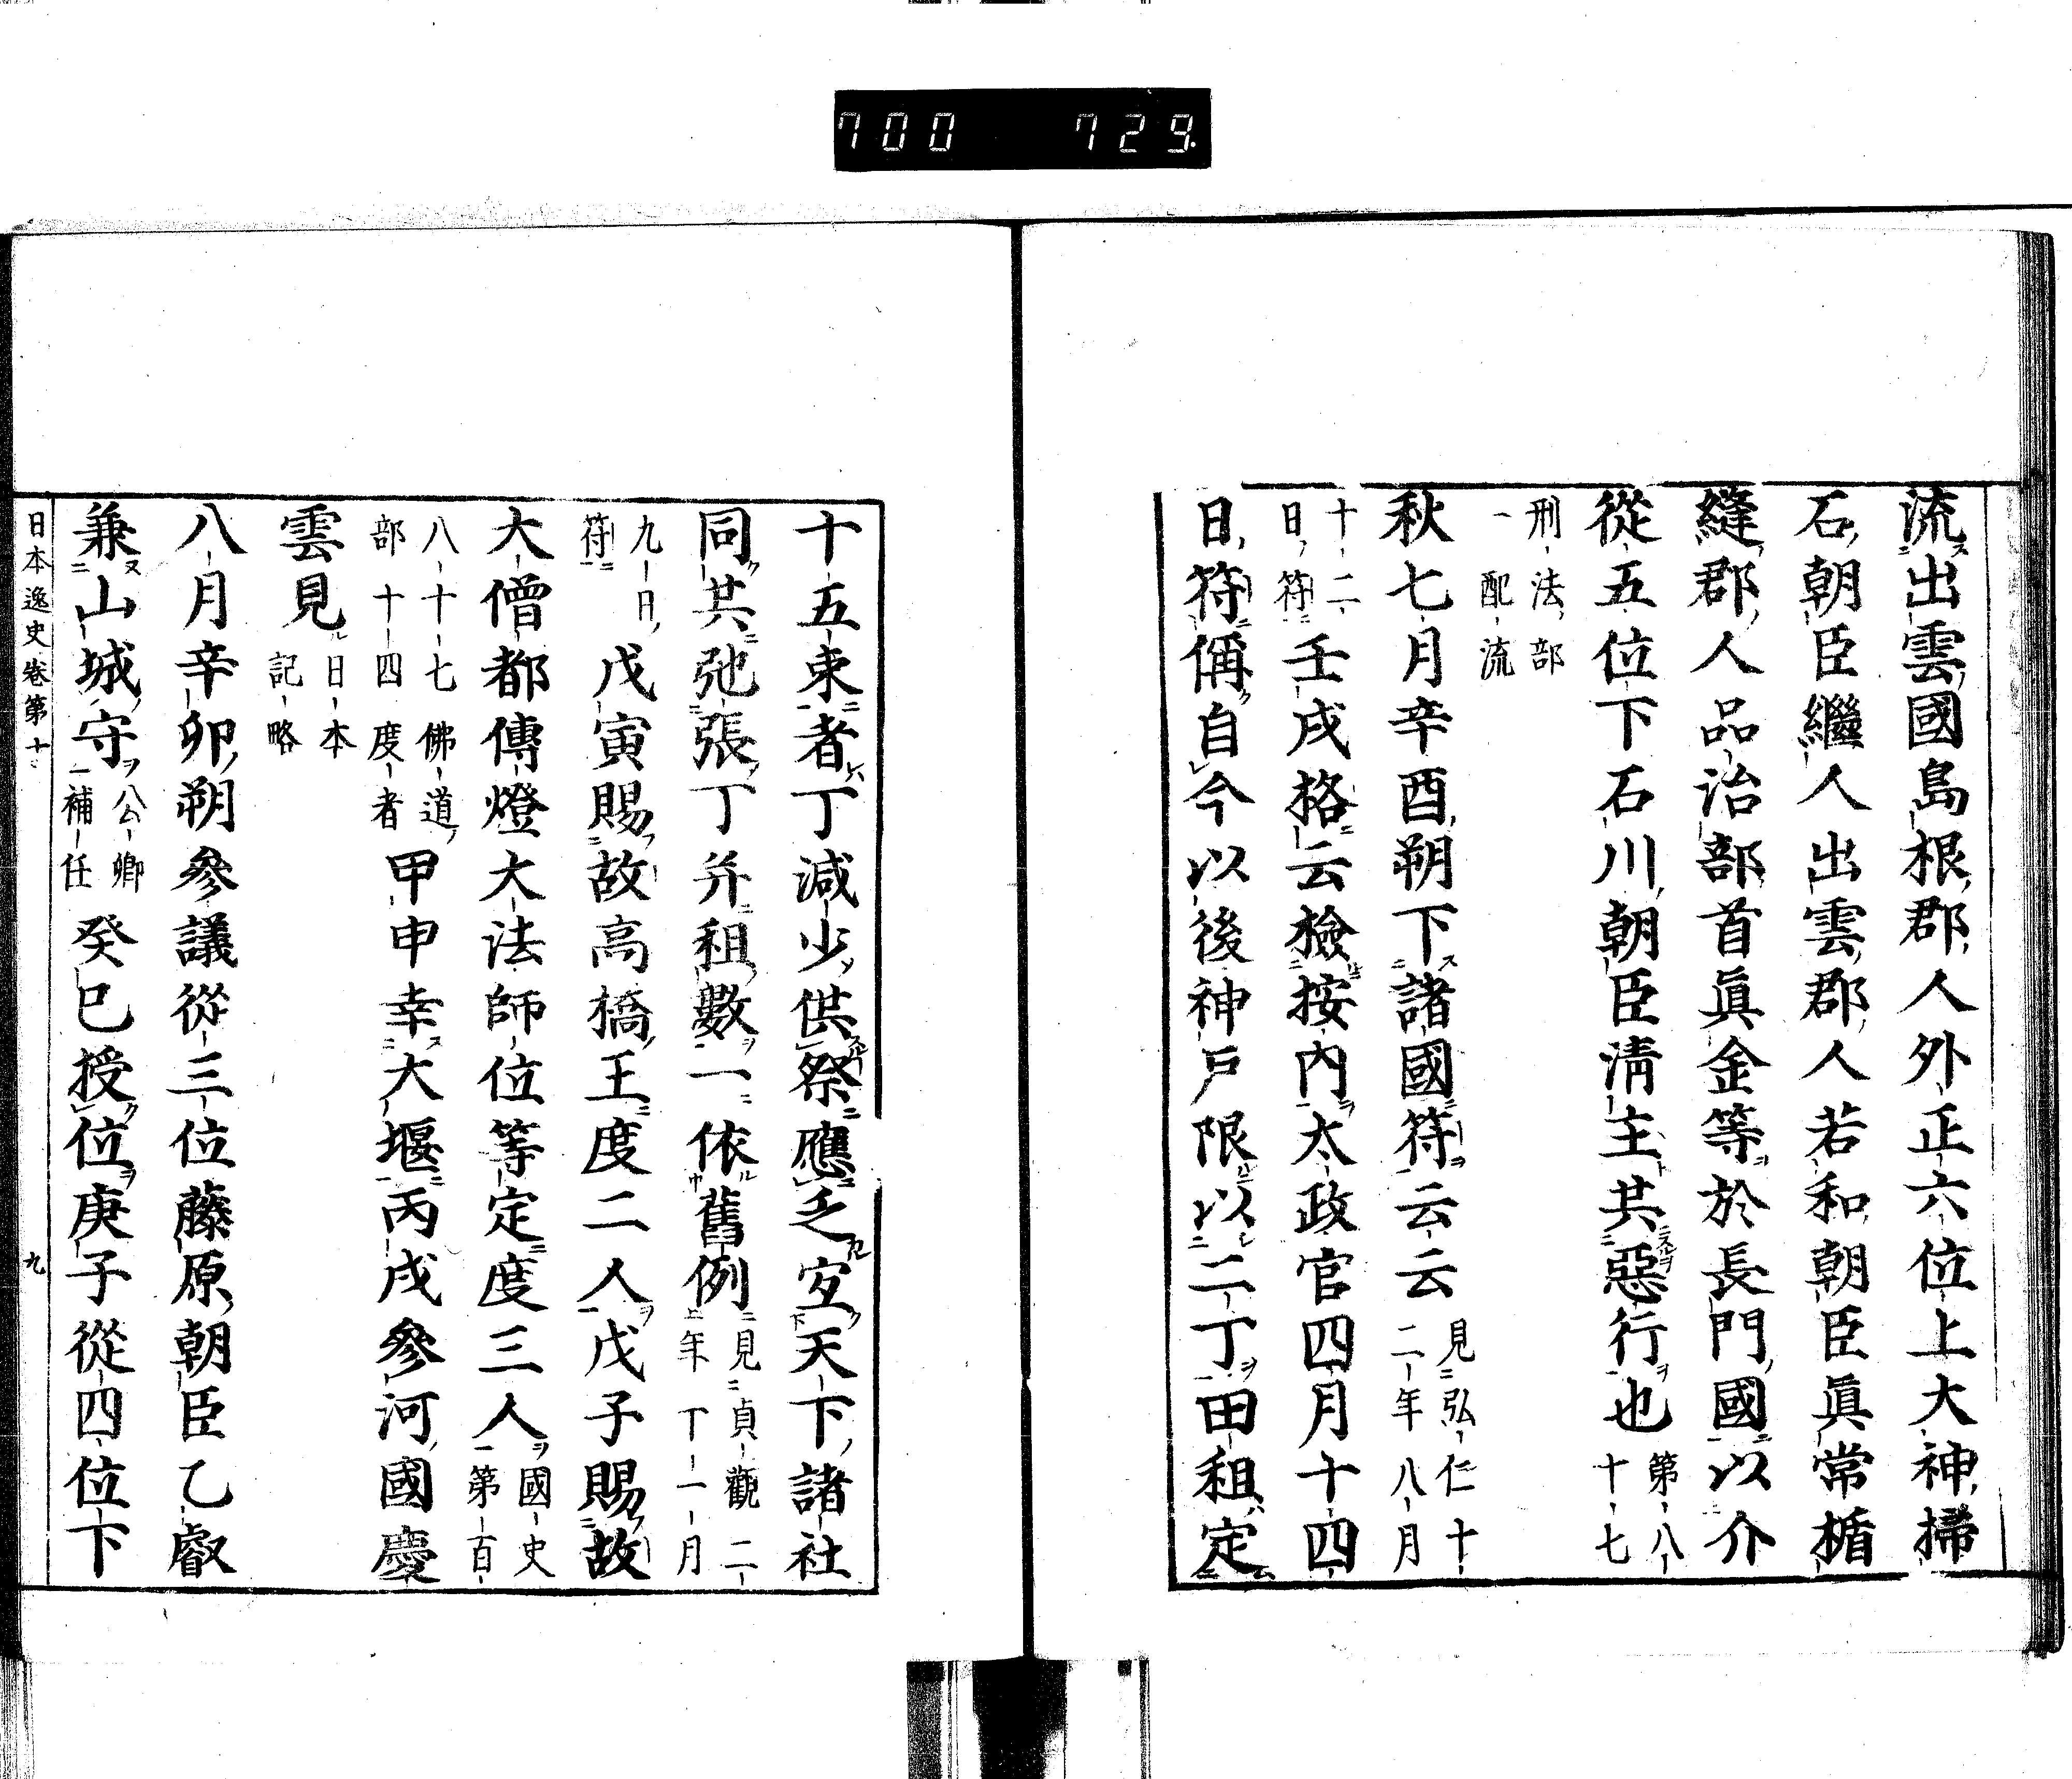 700 729.
流出雲國島根郡人外正六位上大神掃
石朝臣繼人出雲郡人若和朝臣眞常楯
縫郡人品治部首眞金等於長門國以介
從五位下石川朝臣清主共惡行也第八十七
刑法部一配流
秋七月辛酉朔下諸國符云云見弘仁十二年八月
十二日符壬戌格云檢按內太政官四月十四
日符偁自今以後神戶限以二丁田租定
十五束者丁減少供祭應乏宐天下諸社
同共弛張丁并租數一依舊例見貞觀二年丁一月
九日符戊寅賜故高橋王度二人戊子賜故
大僧都傳燈大法師位等定度三人國史第百
八十七佛道部十四度者甲申幸大堰丙戌參河國慶
雲見日本記略
八月辛卯朔參議從三位藤原朝臣乙叡
兼山城守公卿補任八癸巳授位庚子從四位下
日本逸史卷第十 九